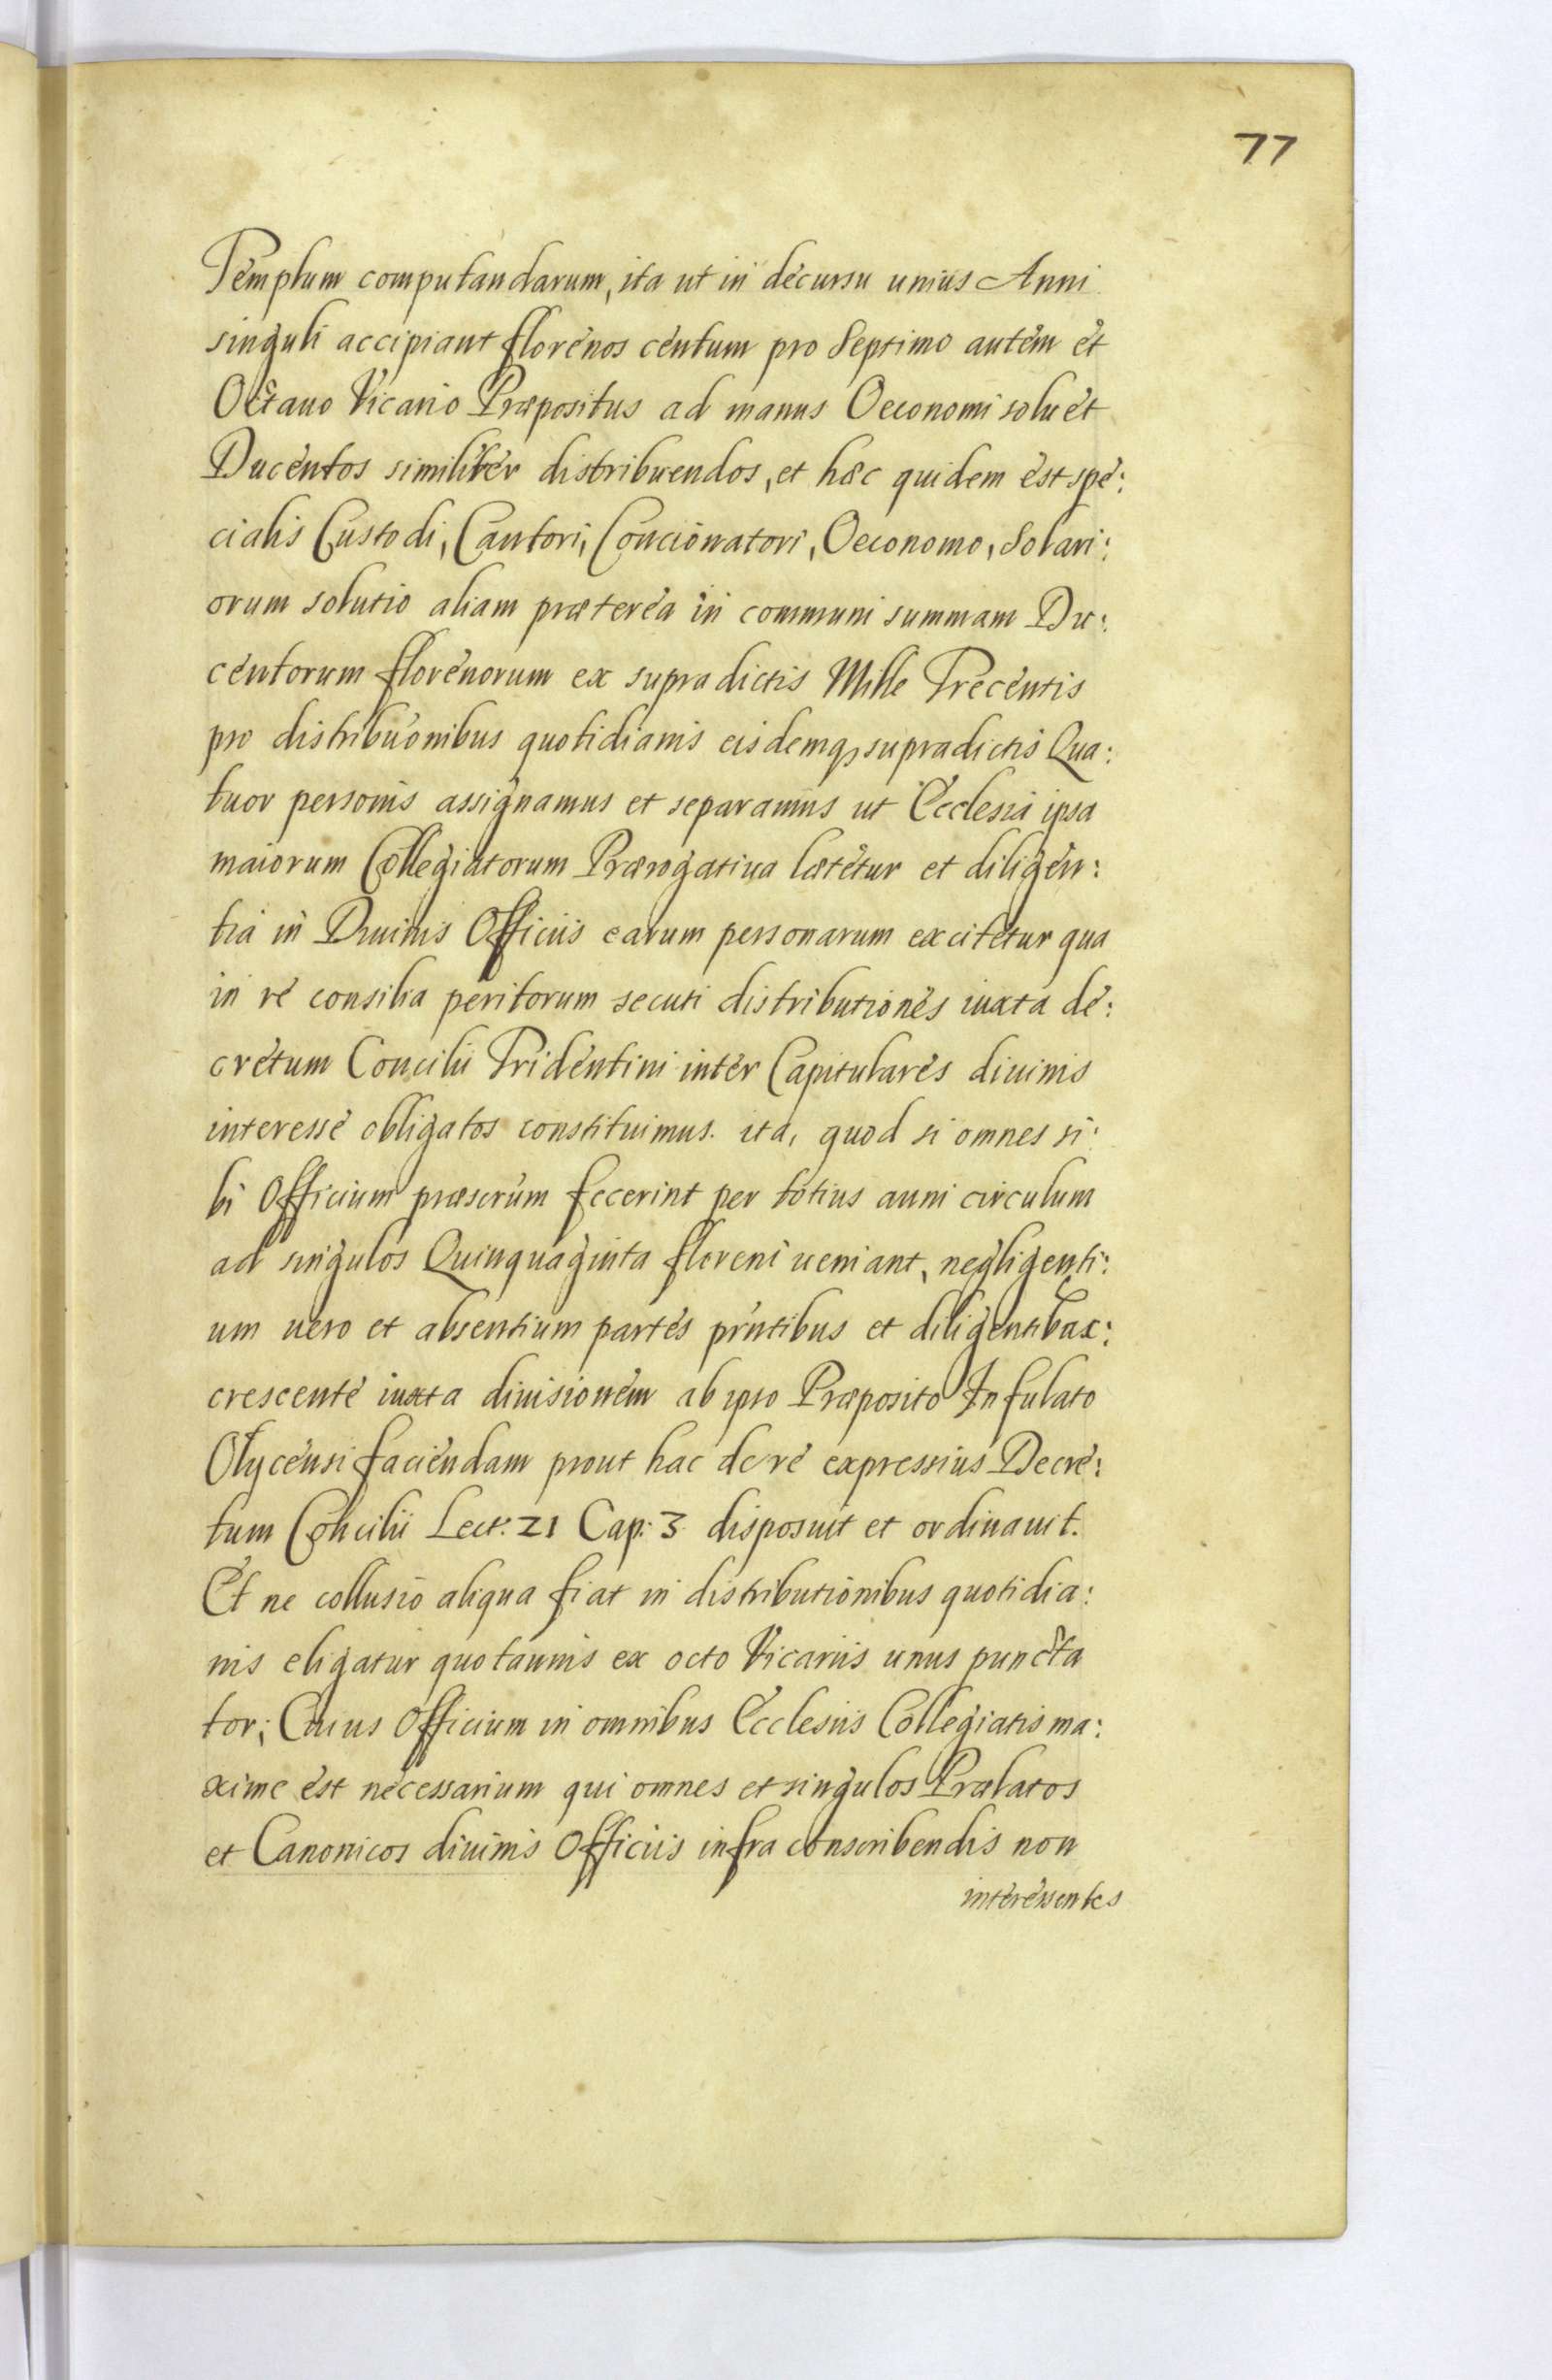 77
Templum computandarum, ita ut in decursu unius Anni
singuli accipiant florenos centum pro Septimo autem et
Octauo Vicario Præpositus ad manus Oeconomi soluet
Ducentos similiter distribuendos, et hæc quidem est spe:
cialis Custodi, Cantori, Concionatori, Oeconomo, Solari:
orum solutio aliam præterea in communi summam Du:
centorum florenorum ex supradictis Mille Trecentis
pro distribuónibus quotidianis eisdemq, supradictis Qua:
tuor personis assignamus et separamus ut Ecclesia ipsa
maiorum Collegiatorum Prærogatiua lætetur et diligen:
tia in Diuinis Officiis earum personarum excitetur qua
in re consilia peritorum secuti distributiones iuxta de:
cretum Concilii Tridentini inter Capitulares diuinis
interesse obligatos constituimus. ita, quod si omnes si:
bi Officium præscrúm fecerint per totius anni circulum
ad singulos Quinquaginta floreni ueniant, negligenti:
um uero et absentium partes prńtibus et diligentibax:
crescente iuxta diuisionem ab ipso Præposito Infulato
Olycensi faciendam prout hac de re expressius Decre:
tum Concilii Lect: 21 Cap: 3 disposuit et ordinauit.
Et ne collusio aliqua fiat in distributionibus quotidia:
nis eligatur quotannis ex octo Vicariis unus puncta
tor; Cuius Officium in omnibus Ecclesiis Collegiatis ma:
xime est necessarium qui omnes et singulos Prælatos
et Canonicos diuinis Officiis infra conscribendis non
interessentes